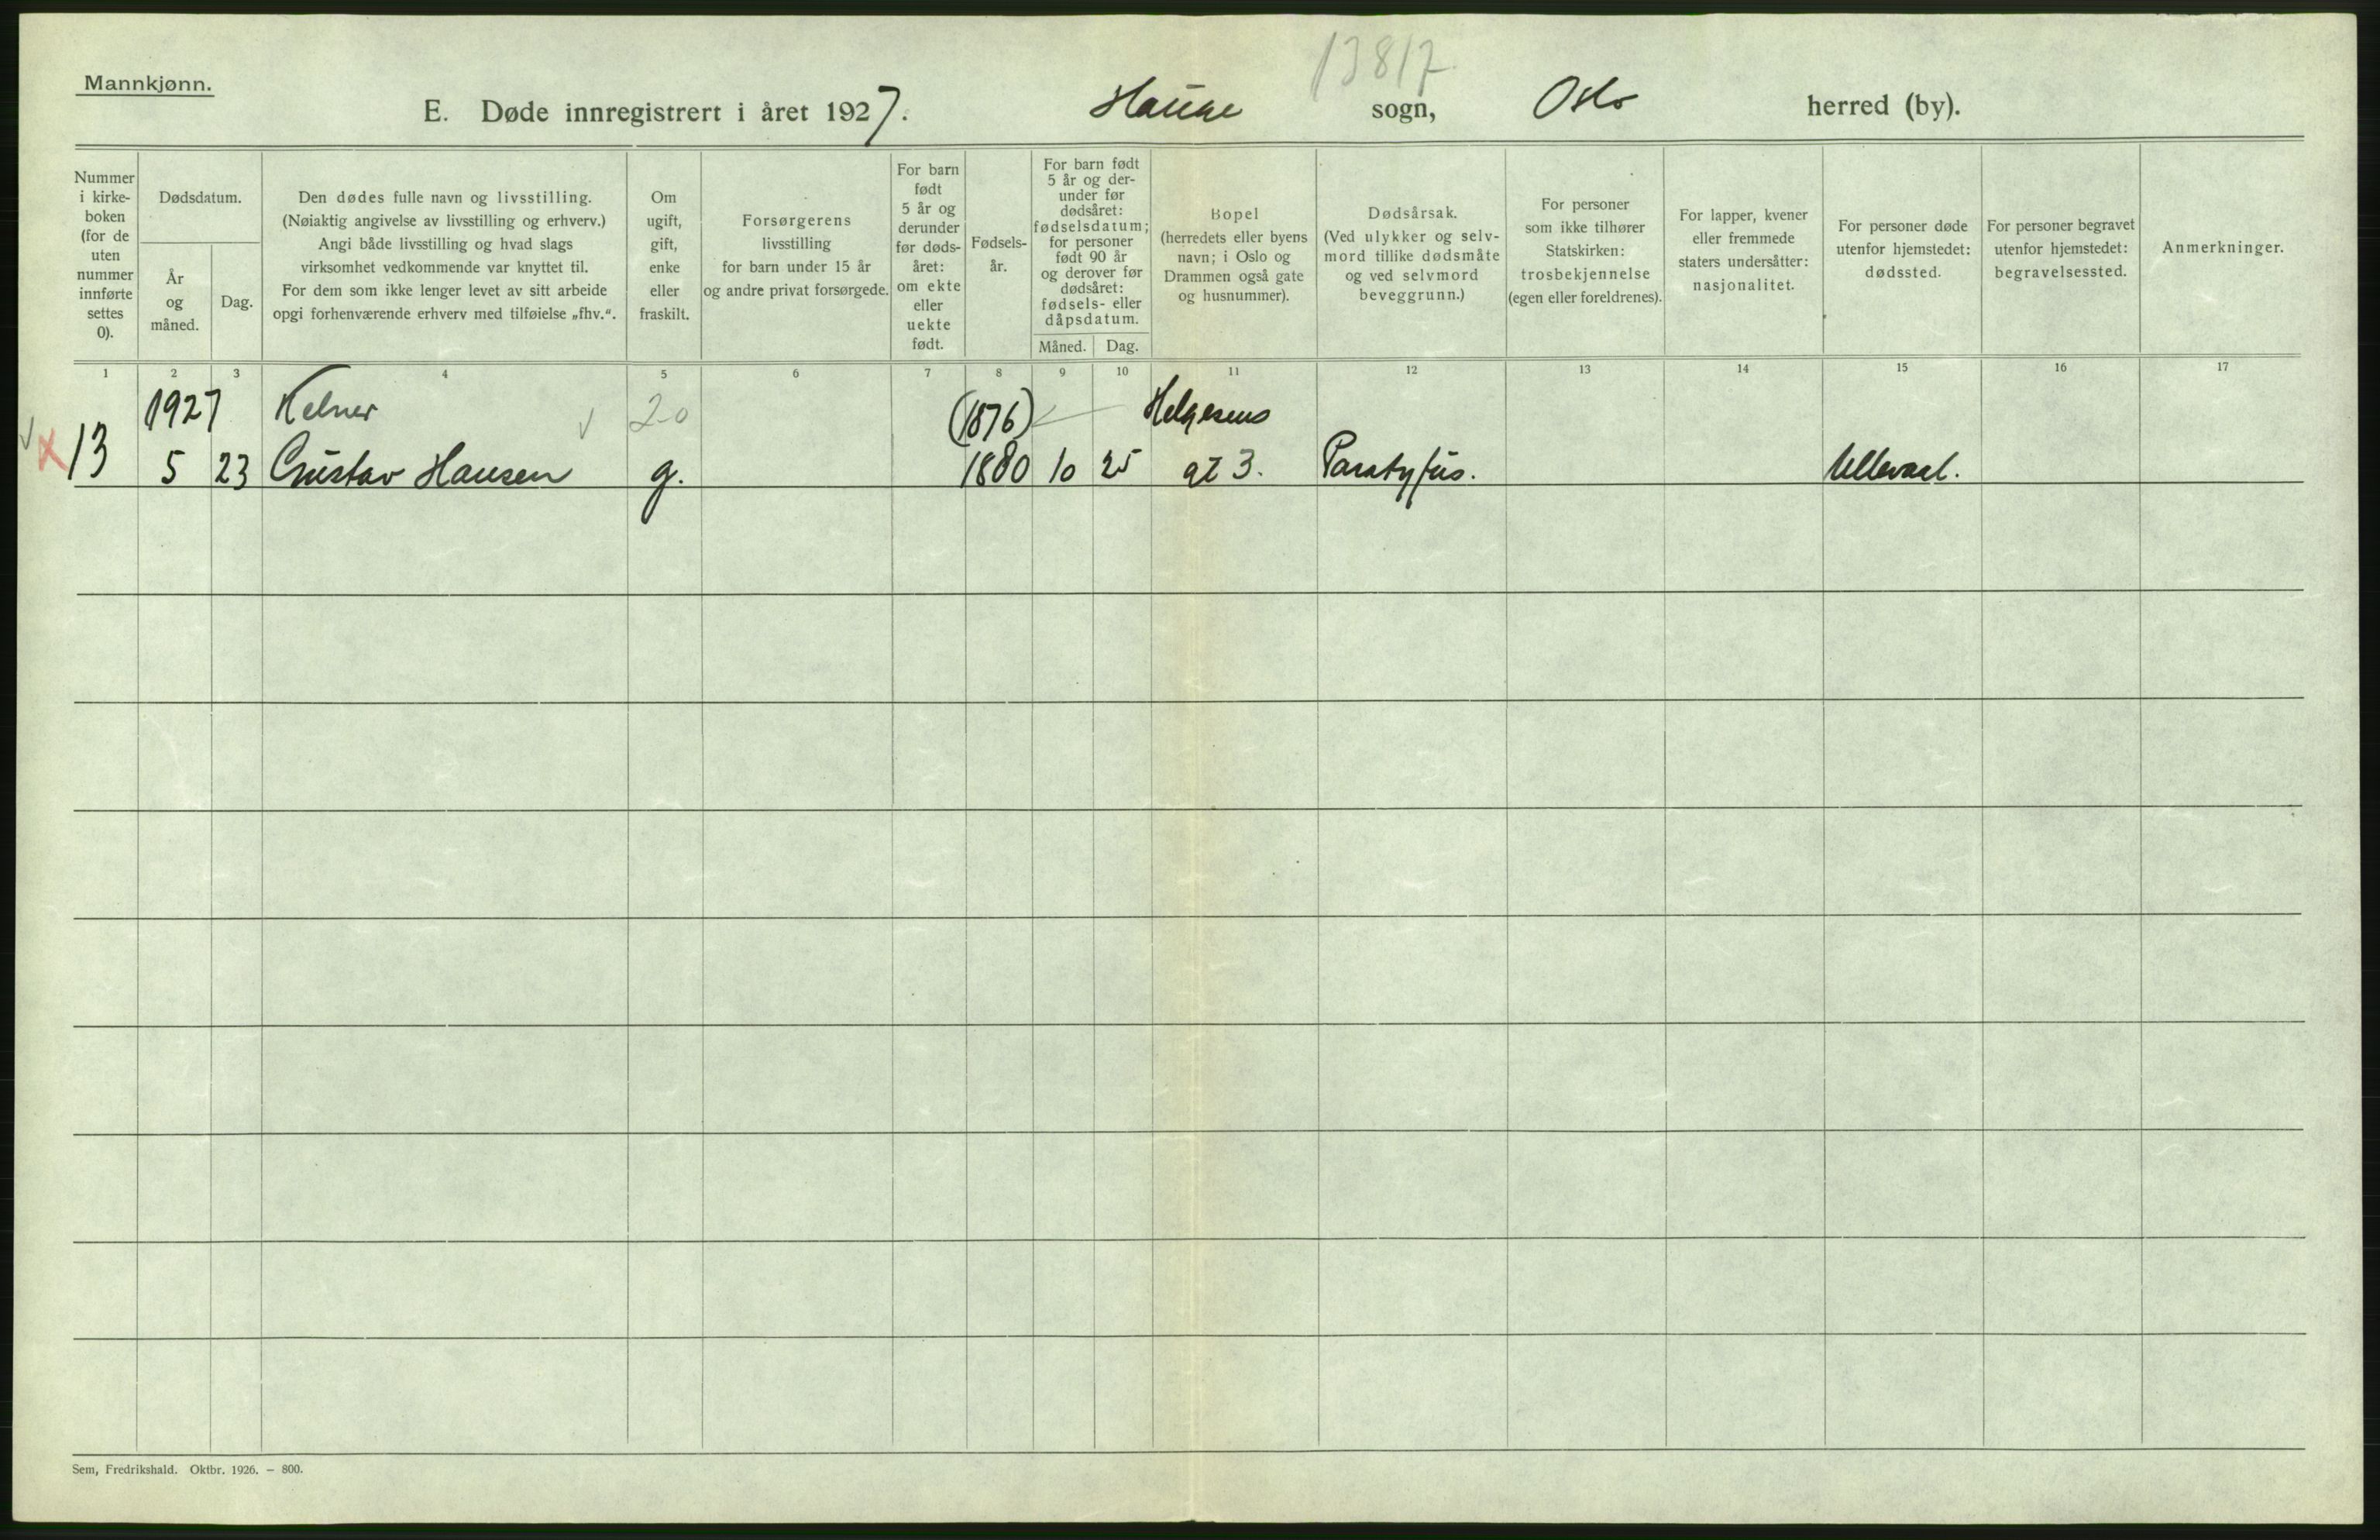 13817.
Mannkjønn.
E. Døde innregistrert i året 1927. Hauge sogn, Oslo herred (by).
Nummer
i kirke-
boken
(for de
uten
nummer
innførte
settes
0).
Dødsdatum.
År
og
måned.
Dag.
Den dødes fulle navn og livsstilling.
(Nøiaktig angivelse av livsstilling og erhverv.)
Angi både livsstilling og hvad slags
virksomhet vedkommende var knyttet til.
For dem som ikke lenger levet av sitt arbeide
opgi forhenværende erhverv med tilføielse „fhv.“.
Om
ugift,
gift,
enke
eller
fraskilt.
Forsørgerens
livsstilling
for barn under 15 år
og andre privat forsørgede.
For barn
født
5 år og
derunder
før døds-
året:
om ekte
eller
uekte
født.
Fødsels-
år.
For barn født
5 år og der-
under før
dødsåret:
fødselsdatum;
for personer
født 90 år
og derover før
dødsåret:
fødsels- eller
dåpsdatum.
Måned. Dag.
Bopel
(herredets eller byens
navn; i Oslo og
Drammen også gate
og husnummer).
Dødsårsak.
(Ved ulykker og selv-
mord tillike dødsmåte
og ved selvmord
beveggrunn.)
For personer
som ikke tilhører
Statskirken:
trosbekjennelse
(egen eller foreldrenes).
For lapper, kvener
eller fremmede
staters undersåtter:
nasjonalitet.
For personer døde
utenfor hjemstedet:
dødssted.
For personer begravet
utenfor hjemstedet:
begravelsessted.
Anmerkninger.
1 2 3 4 5 6 7 8 9 10 11 12 13 14 15 16 17
1927 Kelner 20 (1876) Helgesens
13 5 23 Gustav Hansen g. 1880 10 25 gt 3. Paratyfus. Ullevaal.
Sem, Fredrikshald. Oktbr. 1926. — 800.